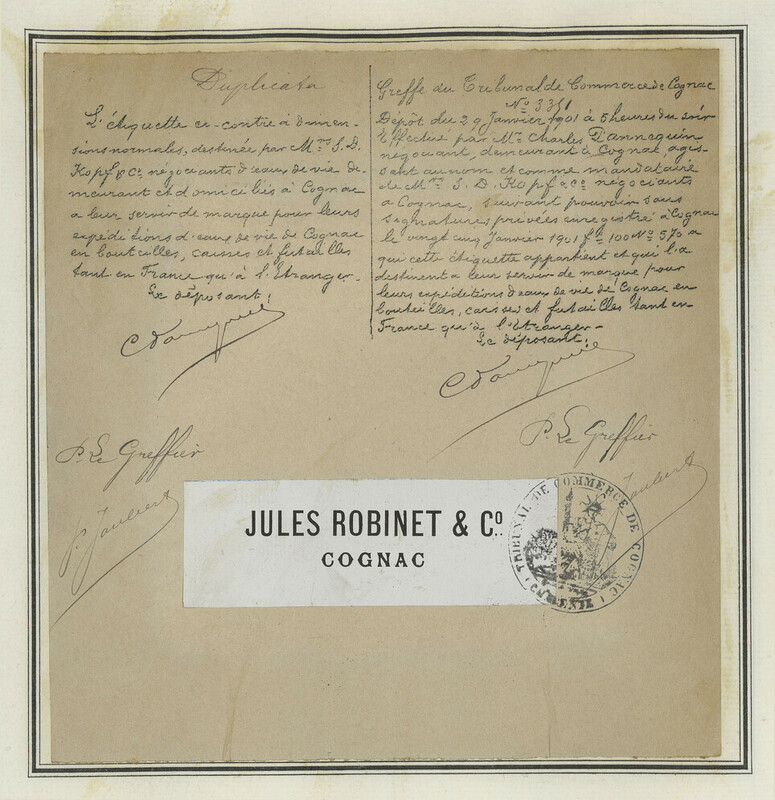 Duplicata
L'étiquette ci-contre à dimen-
sions normales, destinée par Mrs J. D.
Kopf & Co, négociants d'eaux de vie de-
meurant et domiciliés à Cognac
a leur servir de marque pour leurs
expéditions d'eaux de vie de Cognac
en bouteilles, caisses et futailles
tant en France qu'à l'Etranger-
Le déposant:
P. Le Greffier
P. Jaubert
Greffe du Tribunal de Commerce de Cognac
No 3351
Dépôt du 29 Janvier 1901 à 5 heures du soir
Effectué par Mr Charles Dannequin
négociant, demeurant à Cognac, agis-
sant au nom et comme mandataire
de Mrs J. D. Kopf & Co négociants
a Cognac, suivant pouvoir sous
signatures privées enregistré à Cognac
le vingt cinq Janvier 1901 fo 100 No 570 a
qui cette étiquette appartient et qui l'a
destinent a leur servir de marque pour
leurs expéditions d'eaux de vie de Cognac en
bouteilles, caisses et futailles tant en
France qu'à l'étranger-
Le déposant:
P. Le Greffier
Jaubert
JULES ROBINET & Co.
COGNAC
TRIBUNAL DE COMMERCE DE COGNAC
(CHARENTE)